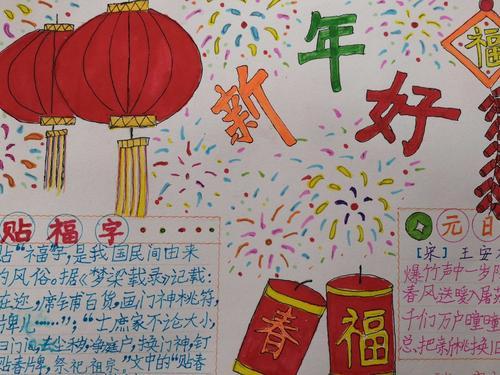 新年好
福
贴福字
贴“福”字,是我国民间由来
的风俗。据《梦梁载录》记载:
在迩,席铺百货,画门神桃符,
牌儿……”;“士庶家不论大小,
门闾,去尘秽,净庭户,换门神,钉
贴春牌,祭祀祖宗”文中的“贴春
春
福
元日
[宋]王安
爆竹声中一岁
春风送暖入屠苏
千门万户曈曈
总把新桃换旧